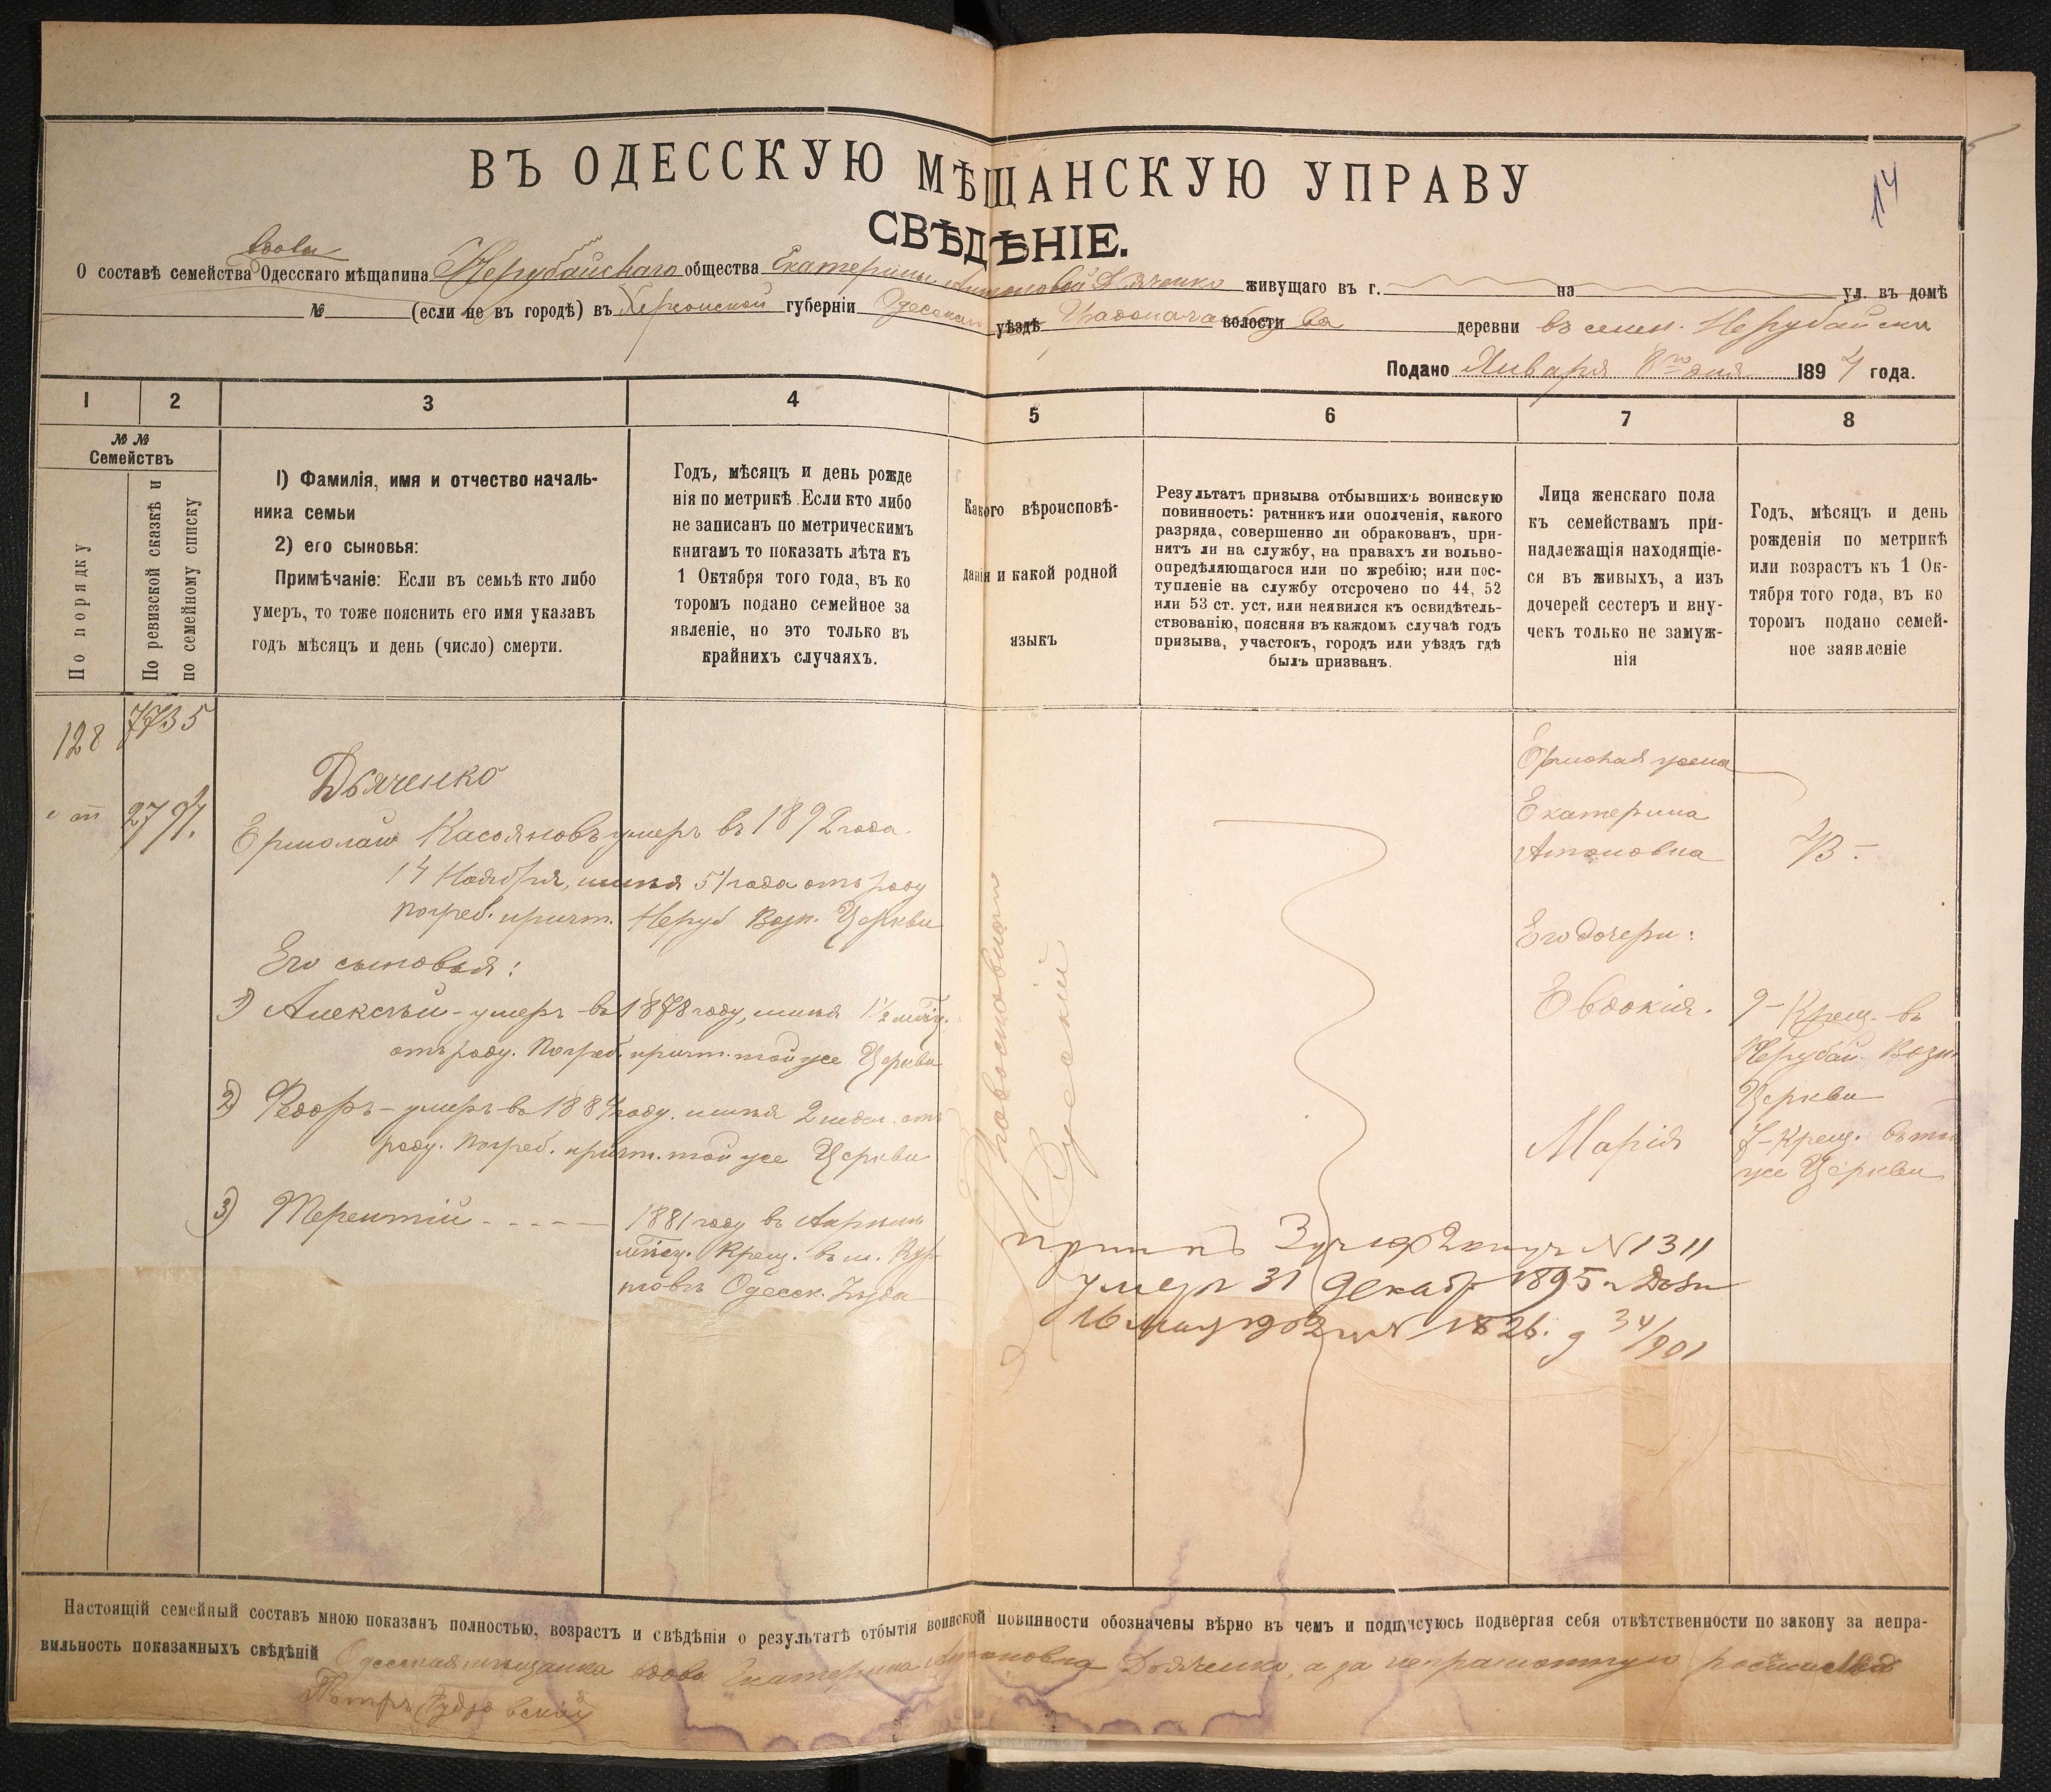 14
ВЪ ОДЕССКУЮ МѢЩАНСКУЮ УПРАВУ
СВѢДѢНІЕ.
вдова
О составѣ семейства Одесскаго мѣщанина Нерубайскаго общества Екатерины Антоновой Дьяченко живущаго въ г. на ул. въ домѣ
№ (если не въ городѣ) въ Херсонской губерніи Одесскаго уѣздѣ волости деревни въ селен. Нерубайска
Подано Января 8го дня 1894 года.
1 2 3 4 5 6 7 8
№ №
Семействъ
По порядку
По ревизской сказкѣ и
по семейному списку
1) Фамилія, имя и отчество началь-
ника семьи
2) его сыновья:
Примѣчаніе: Если въ семьѣ кто либо
умеръ, то тоже пояснить его имя указавъ
годъ мѣсяцъ и день (число) смерти.
Годъ, мѣсяцъ и день рожде
нія по метрикѣ. Если кто либо
не записанъ по метрическимъ
книгамъ то показать лѣта къ
1 Октября того года, въ ко
торомъ подано семейное за
явленіе, но это только въ
крайнихъ случаяхъ.
Какого вѣроисповѣ-
данія и какой родной
языкъ
Результатъ призыва отбывшихъ воинскую
повинность: ратникъ или ополченія, какого
разряда, совершенно ли обракованъ, при-
нятъ ли на службу, на правахъ ли вольно-
опредѣляющагося или по жребію; или пос-
тупленіе на службу отсрочено по 44, 52
или 53 ст. уст. или неявился къ освидѣтель-
ствованію, поясняя въ каждомъ случаѣ годъ
призыва, участокъ, городъ или уѣздъ гдѣ
былъ призванъ.
Лица женскаго пола
къ семействамъ при-
надлежащія находящіе-
ся въ живыхъ, а изъ
дочерей сестеръ и вну-
чекъ только не замуж-
нія
Годъ, мѣсяцъ и день
рожденія по метрикѣ
или возрастъ къ 1 Ок-
тября того года, въ ко
торомъ подано семей-
ное заявленіе
128
7735
2794.
Дьяченко
Ермолай Касьяновъ умеръ въ 1892 года
14 Ноября, имѣя 51 года отъ роду
погреб. причт. Неруб Возн. Церкви
Его сыновья:
1) Алексѣй - умеръ въ 1878 году, имѣя 1 1/2 мѣсц.
отъ роду. Погреб. причт. той же Церкви
2) Федоръ - умеръ въ 1884 году. имѣя 2 недѣл. отъ
роду. Погреб. причт. той же Церкви
3) Терентій
1881 году въ Апрѣлѣ
мѣсц. Крещ. въ
Одесск. Уѣзда
Православное
Русскій
Ермолая жена
Екатерина
Антоновна
43 -
Его дочери:
Евдокія.
9 - Крещ. въ
Нерубай. Возн
Церкви
Марія
7 - Крещ. въ той
же Церкви
№ 1311
умеръ 31 Декаб 1895
16 мая 1902 № 1826. 34/901
Настоящій семейный составъ мною показанъ полностью, возрастъ и свѣдѣнія о результатѣ отбытія воинской повинности обозначены вѣрно въ чемъ и подписуюсь подвергая себя отвѣтственности по закону за непра-
вильность показанныхъ свѣдѣній Одесская мѣщанка вдова Екатерина Антоновна Дьяченко, а за неграмотную росписался
Петръ